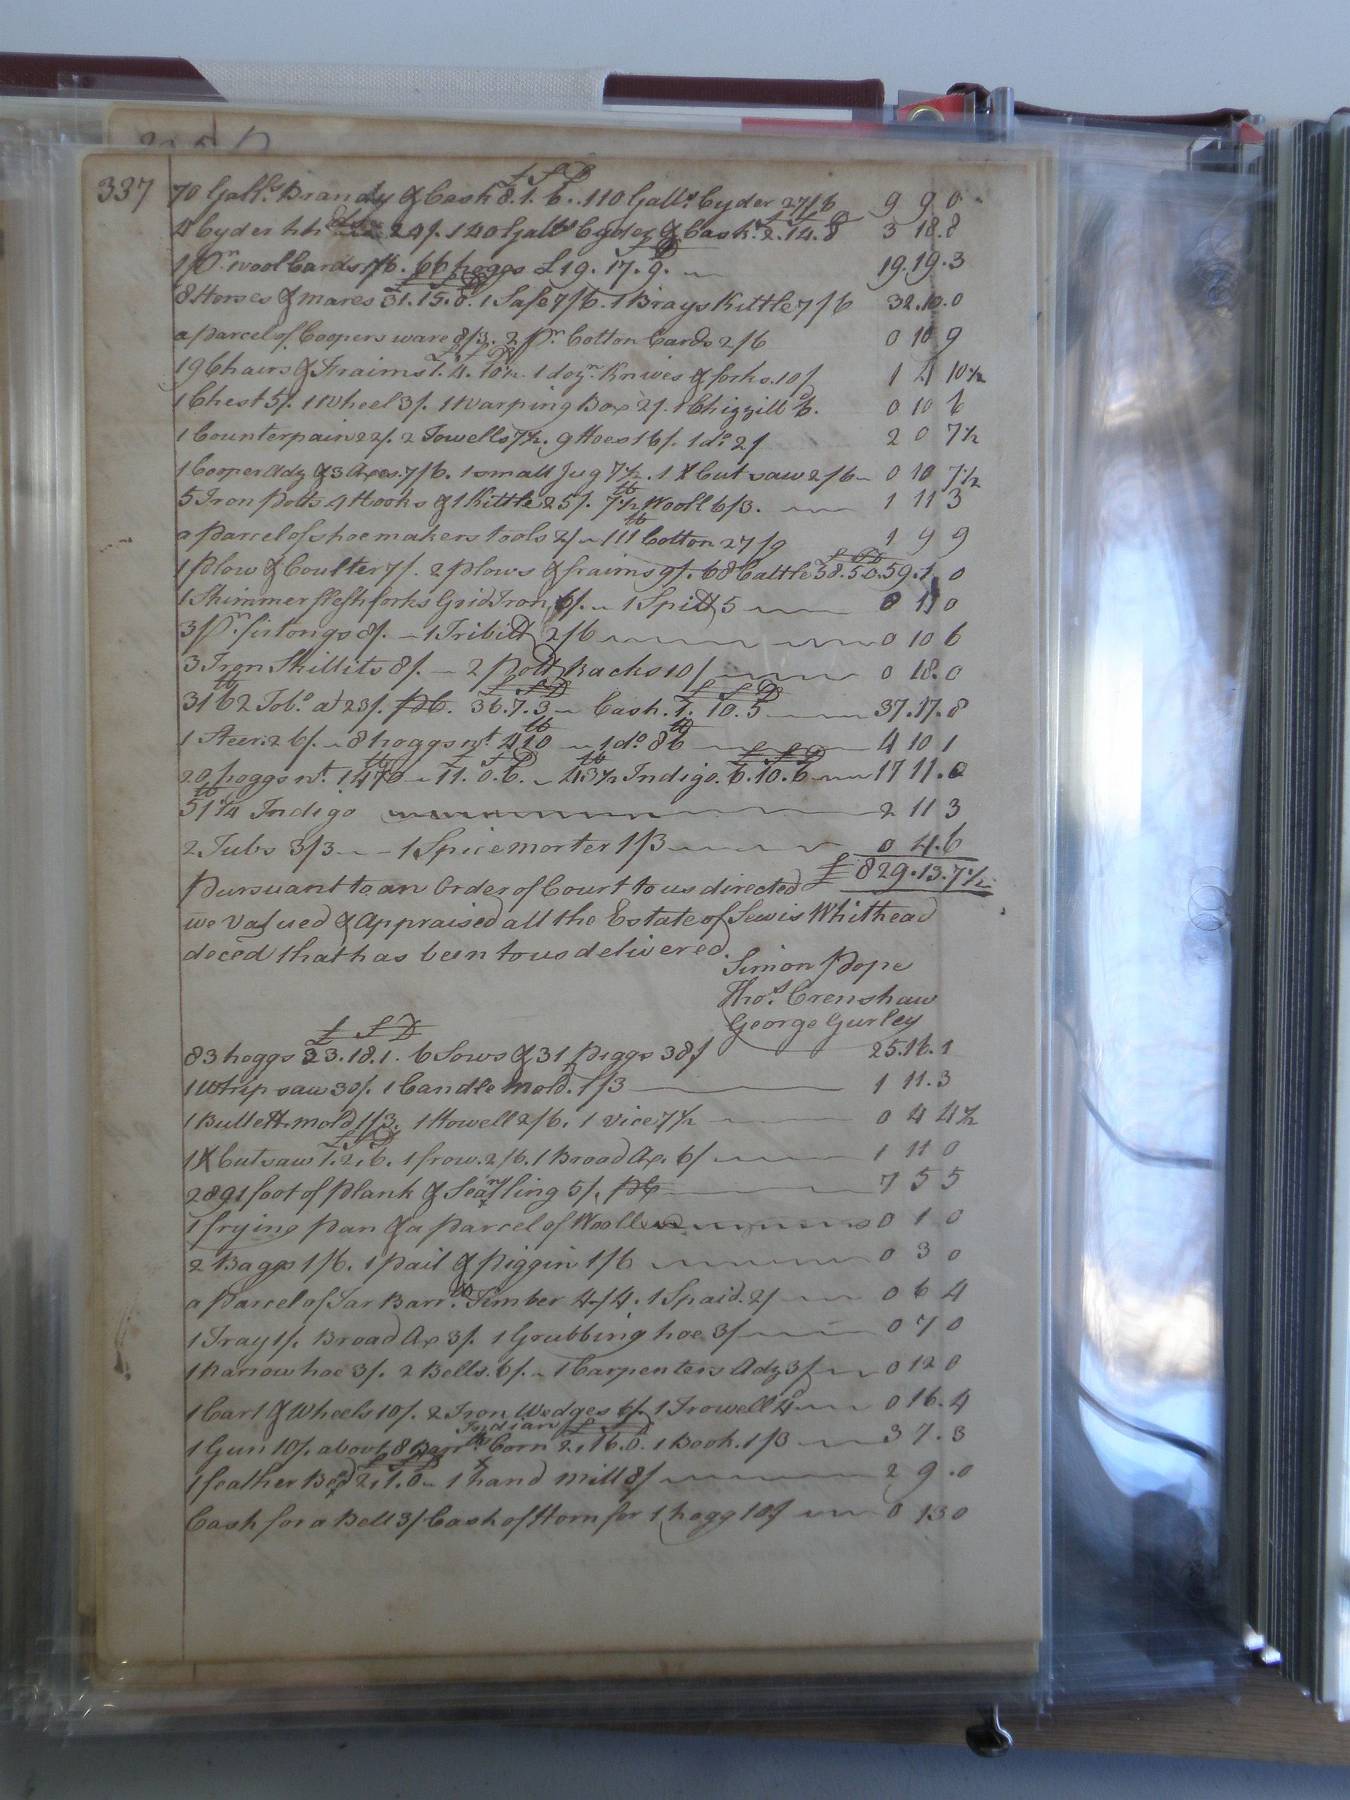 337
£ S D
70 Galls. Brandy & Cask 8.1.6. 110 Galls. Cyder 27/6 9 9 0
4 Cyder hhds 24/. 140 Galls Cyder & Cask. 2.14.8 3 18.8
1 pr. wool Cards 1/6. 66 hoggs £19.17.9. 19.19.3
8 Horses & mares 31.15.0. 1 Safe 7/6. 1 Brays Kittle 7/6 32.10.0
a parcel of Coopers ware 8/3. 2 pr. Cotton Cards 2/6 0 10 9
19 Chairs & Fraims 1.4.10½. 1 dozn. Knives & forks. 10/ 1 4 10½
1 Chest 5/. 1 wheel 3/. 1 Warping Box 2/. 1 Chizzill 6. 0 10 6
1 Counterpain 22/. 2 Towells 7½. 9 Hoes 16/. 1 do. 2/ 2 0 7½
1 Cooper Adz & 3 Axes. 7/6. 1 small Jug 7½. 1 X Cut saw 2/6 0 10 7½
5 Iron Potts 4 Hooks & 1 Kittle 25/. 7½ lb Wooll 6/3. 1 11 3
a parcel of shoemakers tools 2/ 111 lb Cotton 27/9 1 9 9
1 Plow & Coulter 7/. 2 plows & fraims 9/. 68 Cattle 58.5.0. 59.1.0
1 Skimmer flesh forks Grid Iron, 6/. 1 Spitt, 5 0 11 0
3 pr. fir tongs 8/. 1 Tribitt 2/6 0 10 6
3 Iron Skillits 8/. 2 Pott Racks 10/ 0 18.0
3162 lb Tobo. at 23/. PC. 36.7.3 Cash. 1.10.5 37.17.8
1 Steer. 26/. 8 hoggs wt. 410 lb 1 do. 86 lb 4 10 1
20 hoggs wt. 1470 lb 11.0.6. 43½ lb Indigo. 6.10.6 17 11.0
51¼ lb Indigo 2 11 3
2 Tubs 3/3 1 Spice morter 1/3 0 4.6
£ 829.13.7½
Pursuant to an Order of Court to us directed
we Valued & Appraised all the Estate of Lewis Whithead
deced that has been to us delivered.
Simon Pope
Thos. Crenshaw
George Gurley
£ S D
83 hoggs 23.18.1. 6 Sows & 31 Piggs 38/ 25.16.1
1 Whip saw 30/. 1 Candle mold. 1/3 1 11.3
1 Bullett mold 1/3. 1 Howell 2/6. 1 vice 7½ 0 4 4½
1 X Cut saw 1.2.6. 1 frow. 2/6. 1 Broad Ax. 6/ 1 11 0
2891 foot of Plank & Scantling 5/. PC 7 5 5
1 frying pan & a parcel of Wooll 0 1 0
2 Baggs 1/6. 1 Pail & Piggin 1/6 0 3 0
a Parcel of Tar Barrl. Timber 4/4. 1 Spaid. 2/ 0 6 4
1 Tray 1/. Broad Ax 3/. 1 Grubbing hoe 3/ 0 7 0
1 Narrow hoe 3/. 2 Bells. 6/. 1 Carpenters Adz 3/ 0 12 0
1 Cart & Wheels 10/. 2 Iron Wedges 6/. 1 Trowell 4 0 16.4
1 Gun 10/. about 8 Barrls Indian Corn 2.16.0. 1 Book. 1/3 3 7.3
1 feather Bed 2.1.0 1 hand mill 8/ 2 9.0
Cash for a Bell 3/ Cash of Horn for 1 hogg 10/ 0 13 0